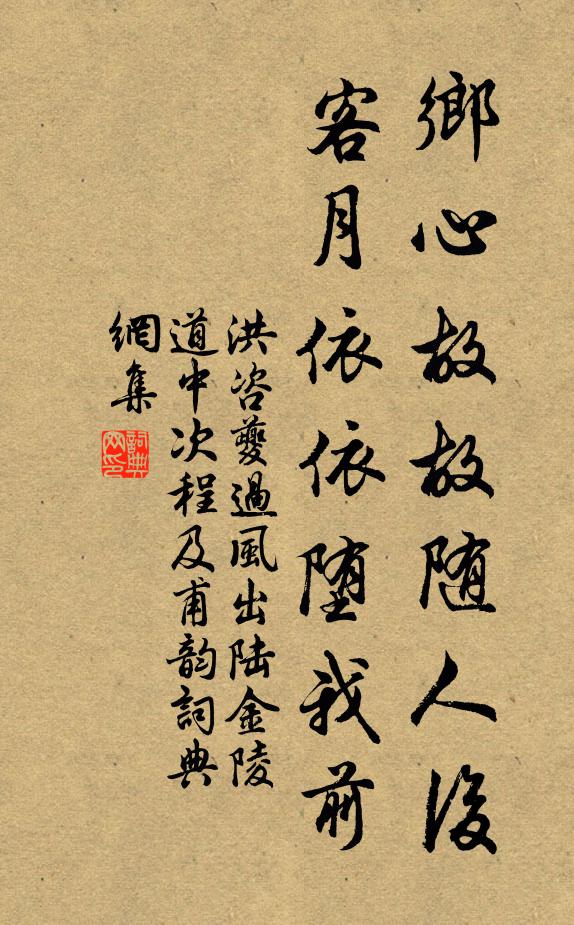 鄉心故故随人後
客月依依堕我前
洪咨夔過風出陆金陵
道中次程及甫韵詞典
網集
詞典
网印